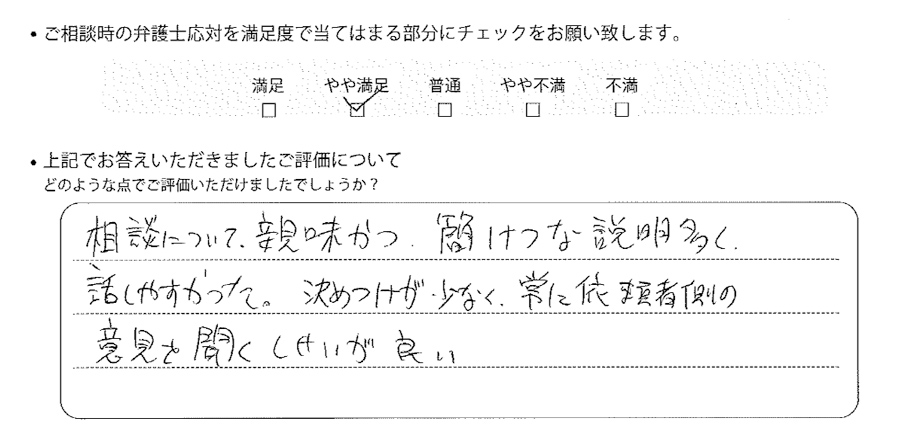 • ご相談時の弁護士応対を満足度で当てはまる部分にチェックをお願い致します。
満足 やや満足 普通 やや不満 不満
□ ☑ □ □ □
• 上記でお答えいただきましたご評価について
どのような点でご評価いただけましたでしょうか？
相談について、親味かつ、簡けつな説明多く、
話しやすかった。決めつけが少なく、常に依頼者側の
意見を聞くしせいが良い